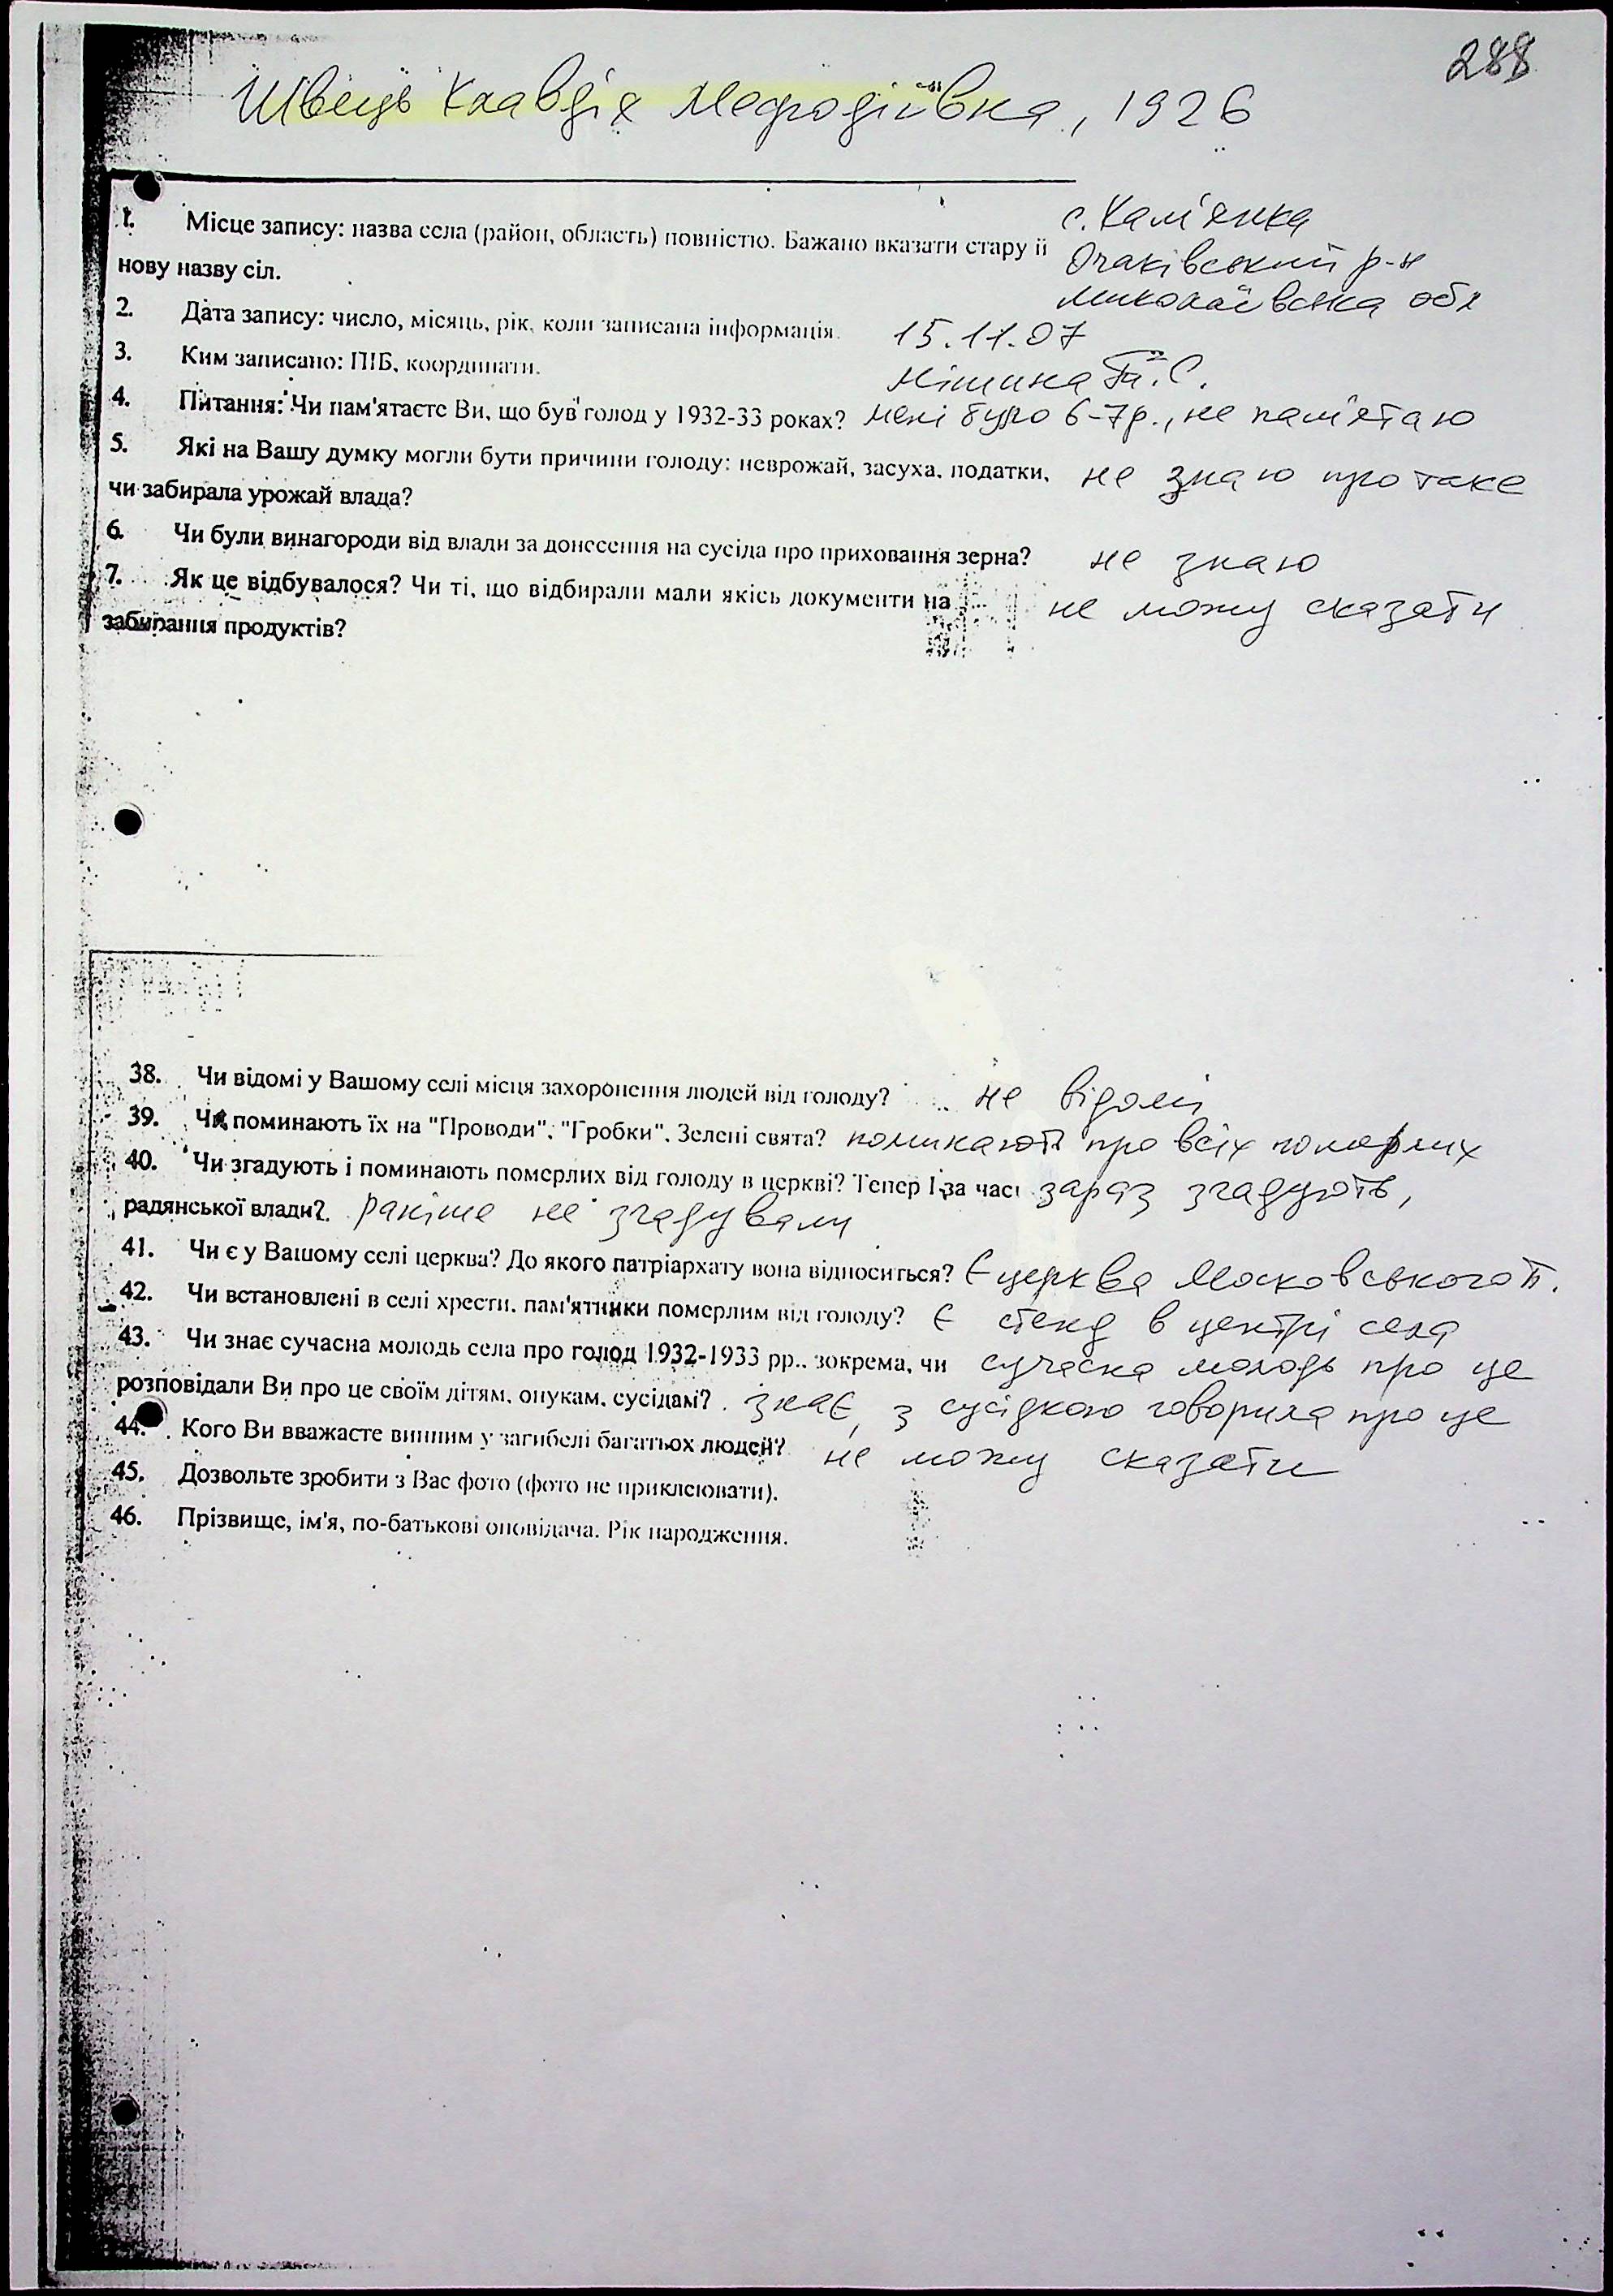 288
Швець Клавдія Мефодіївна, 1926
1. Місце запису: назва села (район, область) повністю. Бажано вказати стару й с. Кам'янка
нову назву сіл. Очаківський р-н
Миколаївська обл
2. Дата запису: число, місяць, рік, коли записана інформація. 15.11.07
3. Ким записано: ПІБ, координати. Мішина С.
4. Питання: Чи пам'ятаєте Ви, що був голод у 1932-33 роках? мені було 6-7р., не пам'ятаю
5. Які на Вашу думку могли бути причини голоду: неврожай, засуха, податки, не знаю про таке
чи забирала урожай влада?
6. Чи були винагороди від влади за донесення на сусіда про приховання зерна? не знаю
7. Як це відбувалося? Чи ті, що відбирали мали якісь документи на не можу сказати
забирання продуктів?
38. Чи відомі у Вашому селі місця захоронення людей від голоду? не відомі
39. Чи поминають їх на "Проводи", "Гробки", Зелені свята? поминають про всіх померлих
40. Чи згадують і поминають померлих від голоду в церкві? Тепер І за часі зараз згадують,
радянської влади? раніше не згадували
41. Чи є у Вашому селі церква? До якого патріархату вона відноситься? Є церква Московського п.
42. Чи встановлені в селі хрести, пам'ятники померлим від голоду? Є стенд в центрі села
43. Чи знає сучасна молодь села про голод 1932-1933 рр.. зокрема, чи сучасна молодь про це
розповідали Ви про це своїм дітям, онукам, сусідам? знає, з сусідкою говорила про це
44. Кого Ви вважаєте винним у загибелі багатьох людей? не можу сказати
45. Дозвольте зробити з Вас фото (фото не приклеювати).
46. Прізвище, ім'я, по-батькові оповідача. Рік народження.